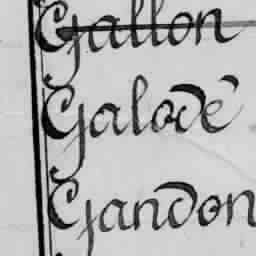 Gallon
Galodé
Gandon